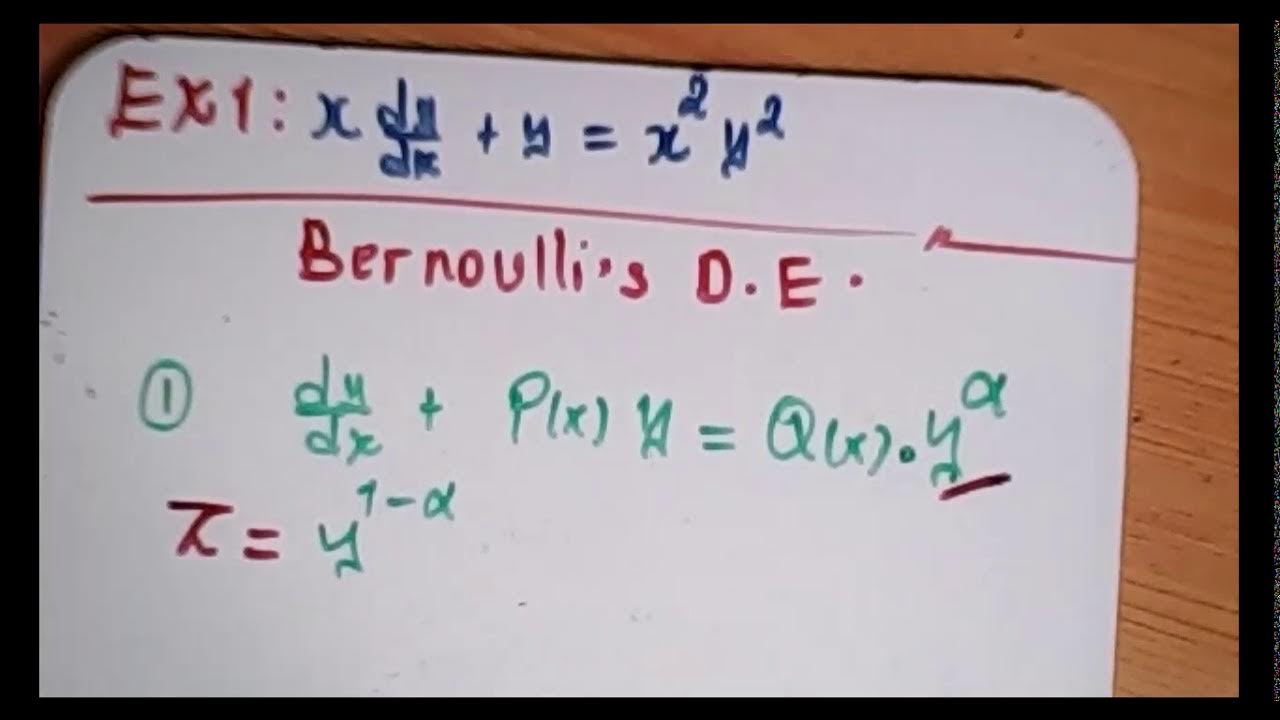 Ex1: x dy/dx + y = x² y²
Bernoulli's D.E.
① dy/dx + P(x) y = Q(x).y^α
z = y^1-α